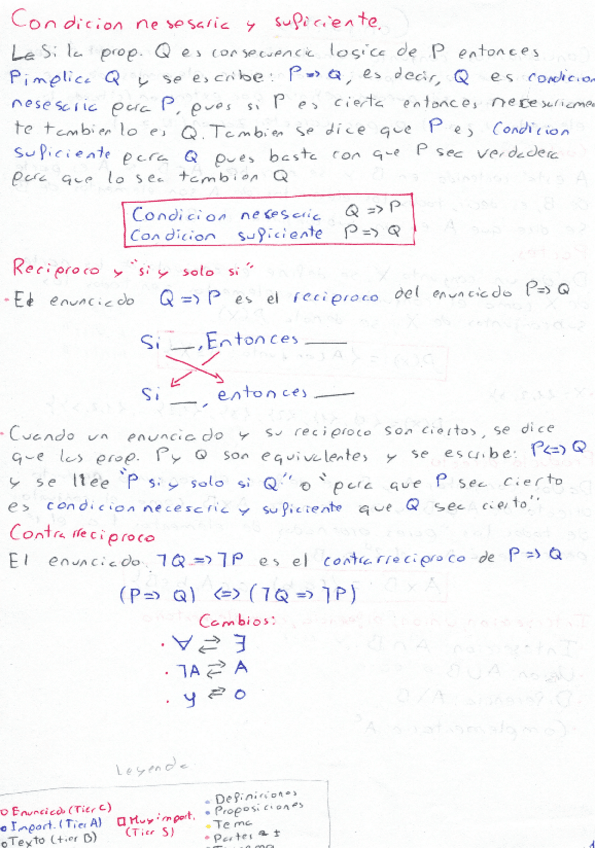 Condicion nesesaria y suficiente.
La Si la prop. Q es consecuencia logica de P entonces
P implica Q y se escribe: P => Q, es decir, Q es condicion
nesesaria para P, pues si P es cierta entonces nesesariamen
te tambien lo es Q. Tambien se dice que P es Condicion
suficiente para Q pues basta con que P sea verdadera
para que lo sea tambien Q
Condicion nesesaria Q => P
Condicion suficiente P => Q
Reciproco y "si y solo si"
· El enunciado Q => P es el reciproco del enunciado P => Q
Si __, Entonces ___
Si __, entonces ___
· Cuando un enunciado y su reciproco son ciertos, se dice
que las prop. P y Q son equivalentes y se escribe: P <=> Q
y se llée "P si y solo si Q" o "para que P sea cierto
es condicion necesaria y suficiente que Q sea cierto"
Contrarreciproco
El enunciado ￢Q => ￢P es el contrarreciproco de P => Q
(P => Q) <=> (￢Q => ￢P)
Cambios:
· ∀ ⇄ ∃
· ￢A ⇄ A
· y ⇄ o
Leyenda
Enunciado (Tier C)
Import. (Tier A)
Texto (tier B)
Muy import.
(Tier S)
Definiciones
Proposiciones
Tema
Partes